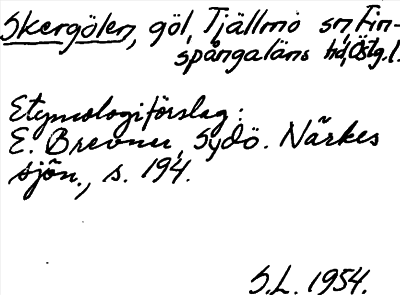 Skergölen, göl, Tjällmo sn, Fin-
spångaläns hd, Östg. l.
Etymologiförslag:
E. Brevner, Sydö. Närkes
sjön., s. 194.
S.L. 1954.